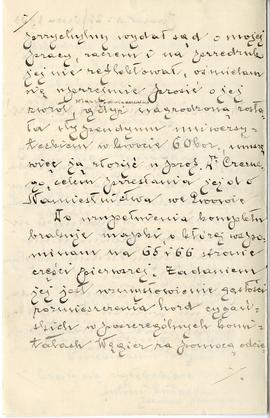 przychylny wydał sąd o mojej
pracy, zaczem i na przedruk
jej nie reflektował, ośmielam
się uprzejmie prosić o jej
zwrot, gdyż nagrodzona zosta-
ła stypendyum uniwersy-
teckiem w kwocie 60 kor, muszę
więc ją złożyć u prof. Dr Czerne-
go, celem przesłania jej do
Namiestnictwa we Lwowie
Do uzupełnienia kompletu
brakuje mapki o której wspo-
minam na 65 i 66 stronie
części pierwszej. Zadaniem
jej jest uzmysłowienie gęstości
rozmieszczenia hord cygań-
skich w poszczególnych komi-
tatach Węgier za pomocą odcie-